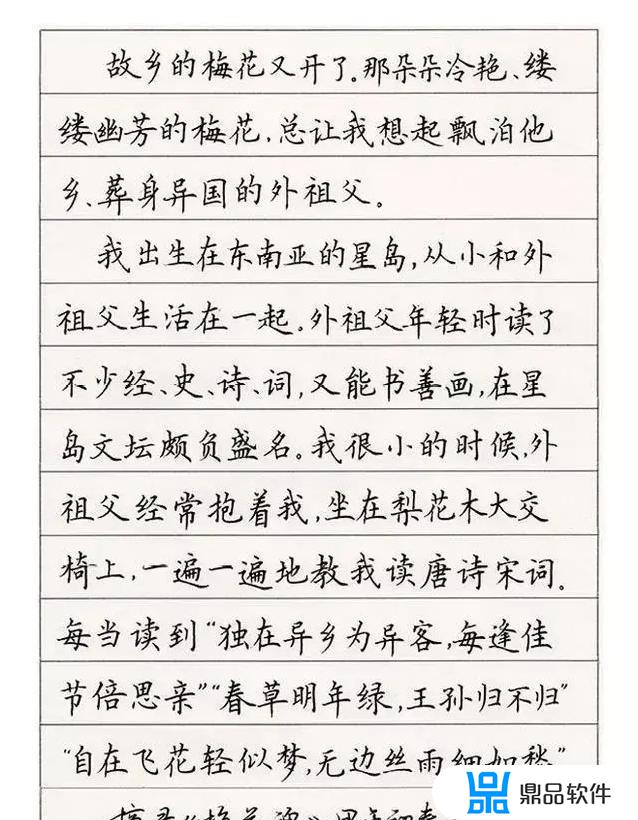 故乡的梅花又开了。那朵朵冷艳、缕
缕幽芳的梅花,总让我想起飘泊他
乡、葬身异国的外祖父。
我出生在东南亚的星岛,从小和外
祖父生活在一起。外祖父年轻时读了
不少经、史、诗、词,又能书善画,在星
岛文坛颇负盛名。我很小的时候,外
祖父经常抱着我,坐在梨花木大交
椅上,一遍一遍地教我读唐诗宋词。
每当读到“独在异乡为异客,每逢佳
节倍思亲”“春草明年绿,王孙归不归”
“自在飞花轻似梦,无边丝雨细如愁”
鼎品软件